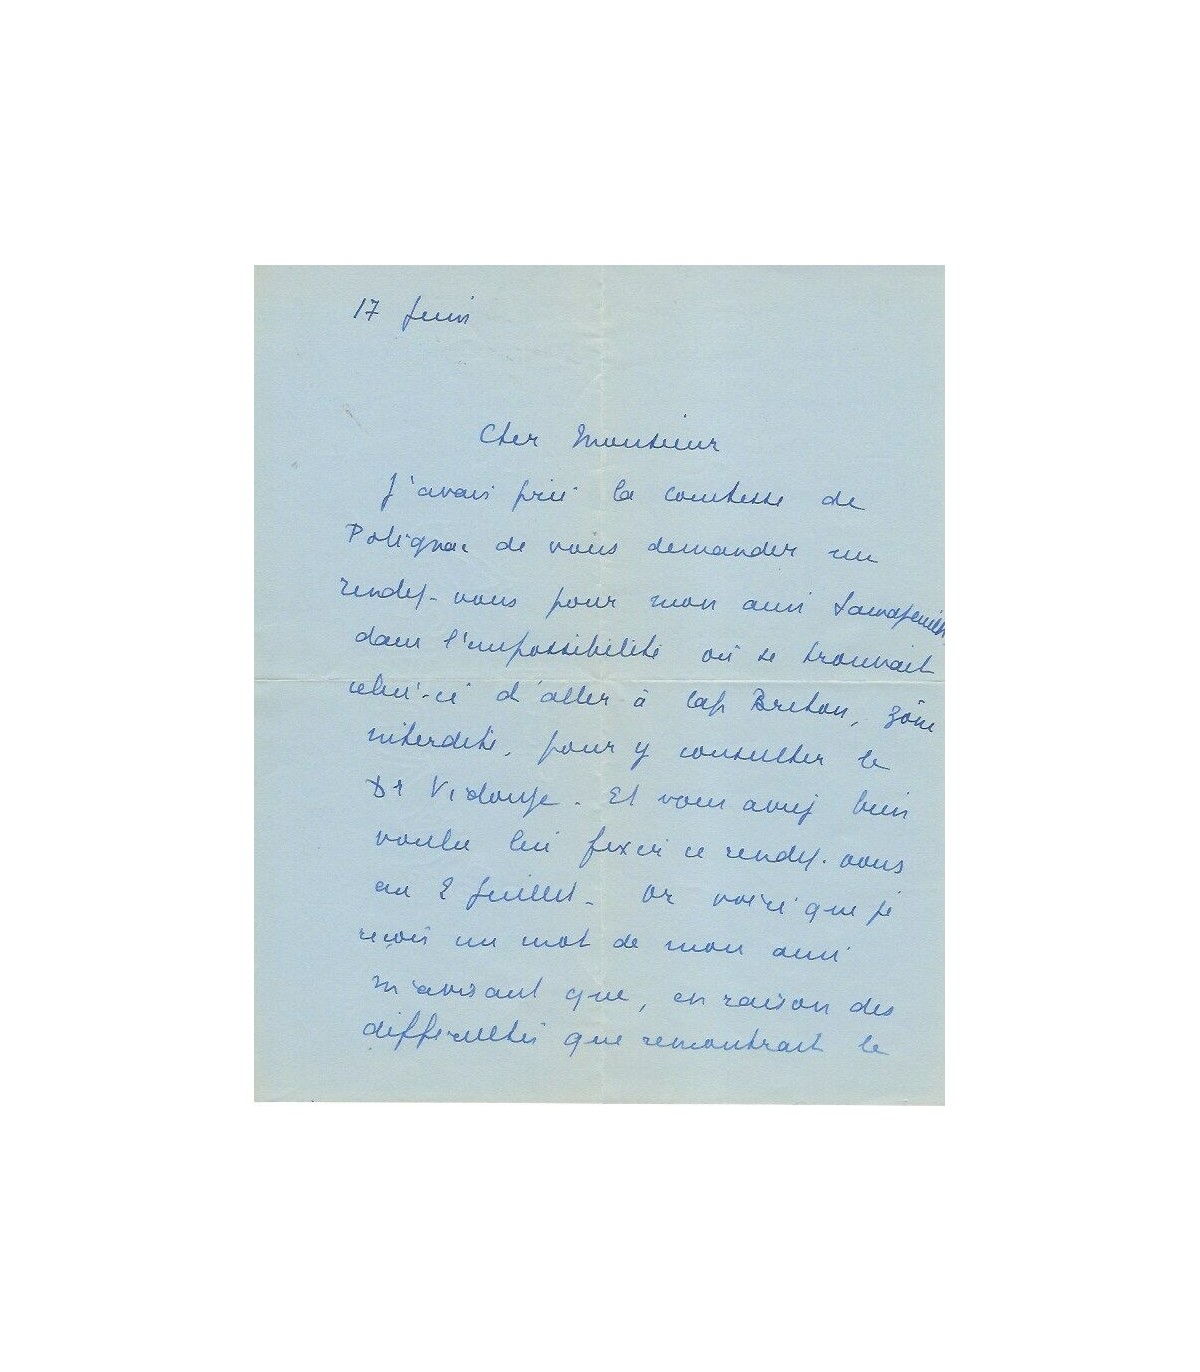 17 Juin
Cher Monsieur
J'avais prié la comtesse de
Polignac de vous demander un
rendez-vous pour mon ami
dans l'impossibilité où se trouvait
celui-ci d'aller à Cap Breton, zône
interdite, pour y consulter le
Dr Et vous avez bien
voulu lui fixer ce rendez-vous
au 2 Juillet - Or voici que je
reçois un mot de mon ami
m'avisant que, en raison des
difficultés que le